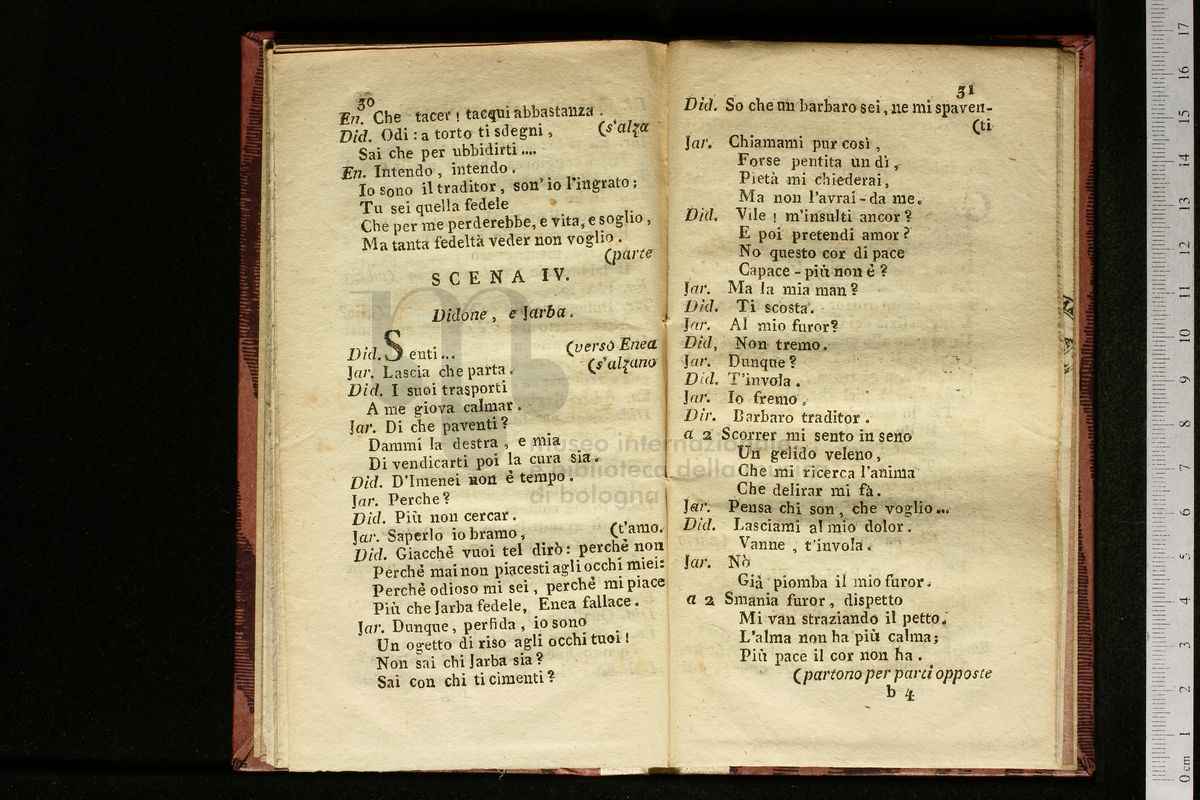 30
En. Che tacer! tacqui abbastanza.
Did. Odi: a torto ti sdegni, (s'alza
Sai che per ubbidirti....
En. Intendo, intendo.
Io sono il traditor, son' io l'ingrato;
Tu sei quella fedele
Che per me perderebbe, e vita, e soglio,
Ma tanta fedeltà veder non voglio.
(parte
SCENA IV.
Didone, e Jarba.
Did. Senti... (verso Enea
Jar. Lascia che parta. (s'alzano
Did. I suoi trasporti
A me giova calmar.
Jar. Di che paventi?
Dammi la destra, e mia
Di vendicarti poi la cura sia.
Did. D'Imenei non è tempo.
Jar. Perche?
Did. Più non cercar.
Jar. Saperlo io bramo, (t'amo.
Did. Giacchè vuoi tel dirò: perchè non
Perchè mai non piacesti agli occhi miei:
Perchè odioso mi sei, perchè mi piace
Più che Jarba fedele, Enea fallace.
Jar. Dunque, perfida, io sono
Un ogetto di riso agli occhi tuoi!
Non sai chi Jarba sia?
Sai con chi ti cimenti?
31
Did. So che un barbaro sei, ne mi spaven-
(ti
Jar. Chiamami pur così,
Forse pentita un dì,
Pietà mi chiederai,
Ma non l'avrai-da me.
Did. Vile! m'insulti ancor?
E poi pretendi amor?
No questo cor di pace
Capace-più non è?
Jar. Ma la mia man?
Did. Ti scosta.
Jar. Al mio furor?
Did, Non tremo.
Jar. Dunque?
Did. T'invola.
Jar. Io fremo.
Dir. Barbaro traditor.
a 2 Scorrer mi sento in seno
Un gelido veleno,
Che mi ricerca l'anima
Che delirar mi fà.
Jar. Pensa chi son, che voglio...
Did. Lasciami al mio dolor.
Vanne, t'invola.
Jar. Nò
Già piomba il mio furor.
a 2 Smania furor, dispetto
Mi van straziando il petto.
L'alma non ha più calma;
Più pace il cor non ha.
(partono per parti opposte
b 4
museo internazionale
e biblioteca della
di bologna
0 cm 1 2 3 4 5 6 7 8 9 10 11 12 13 14 15 16 17